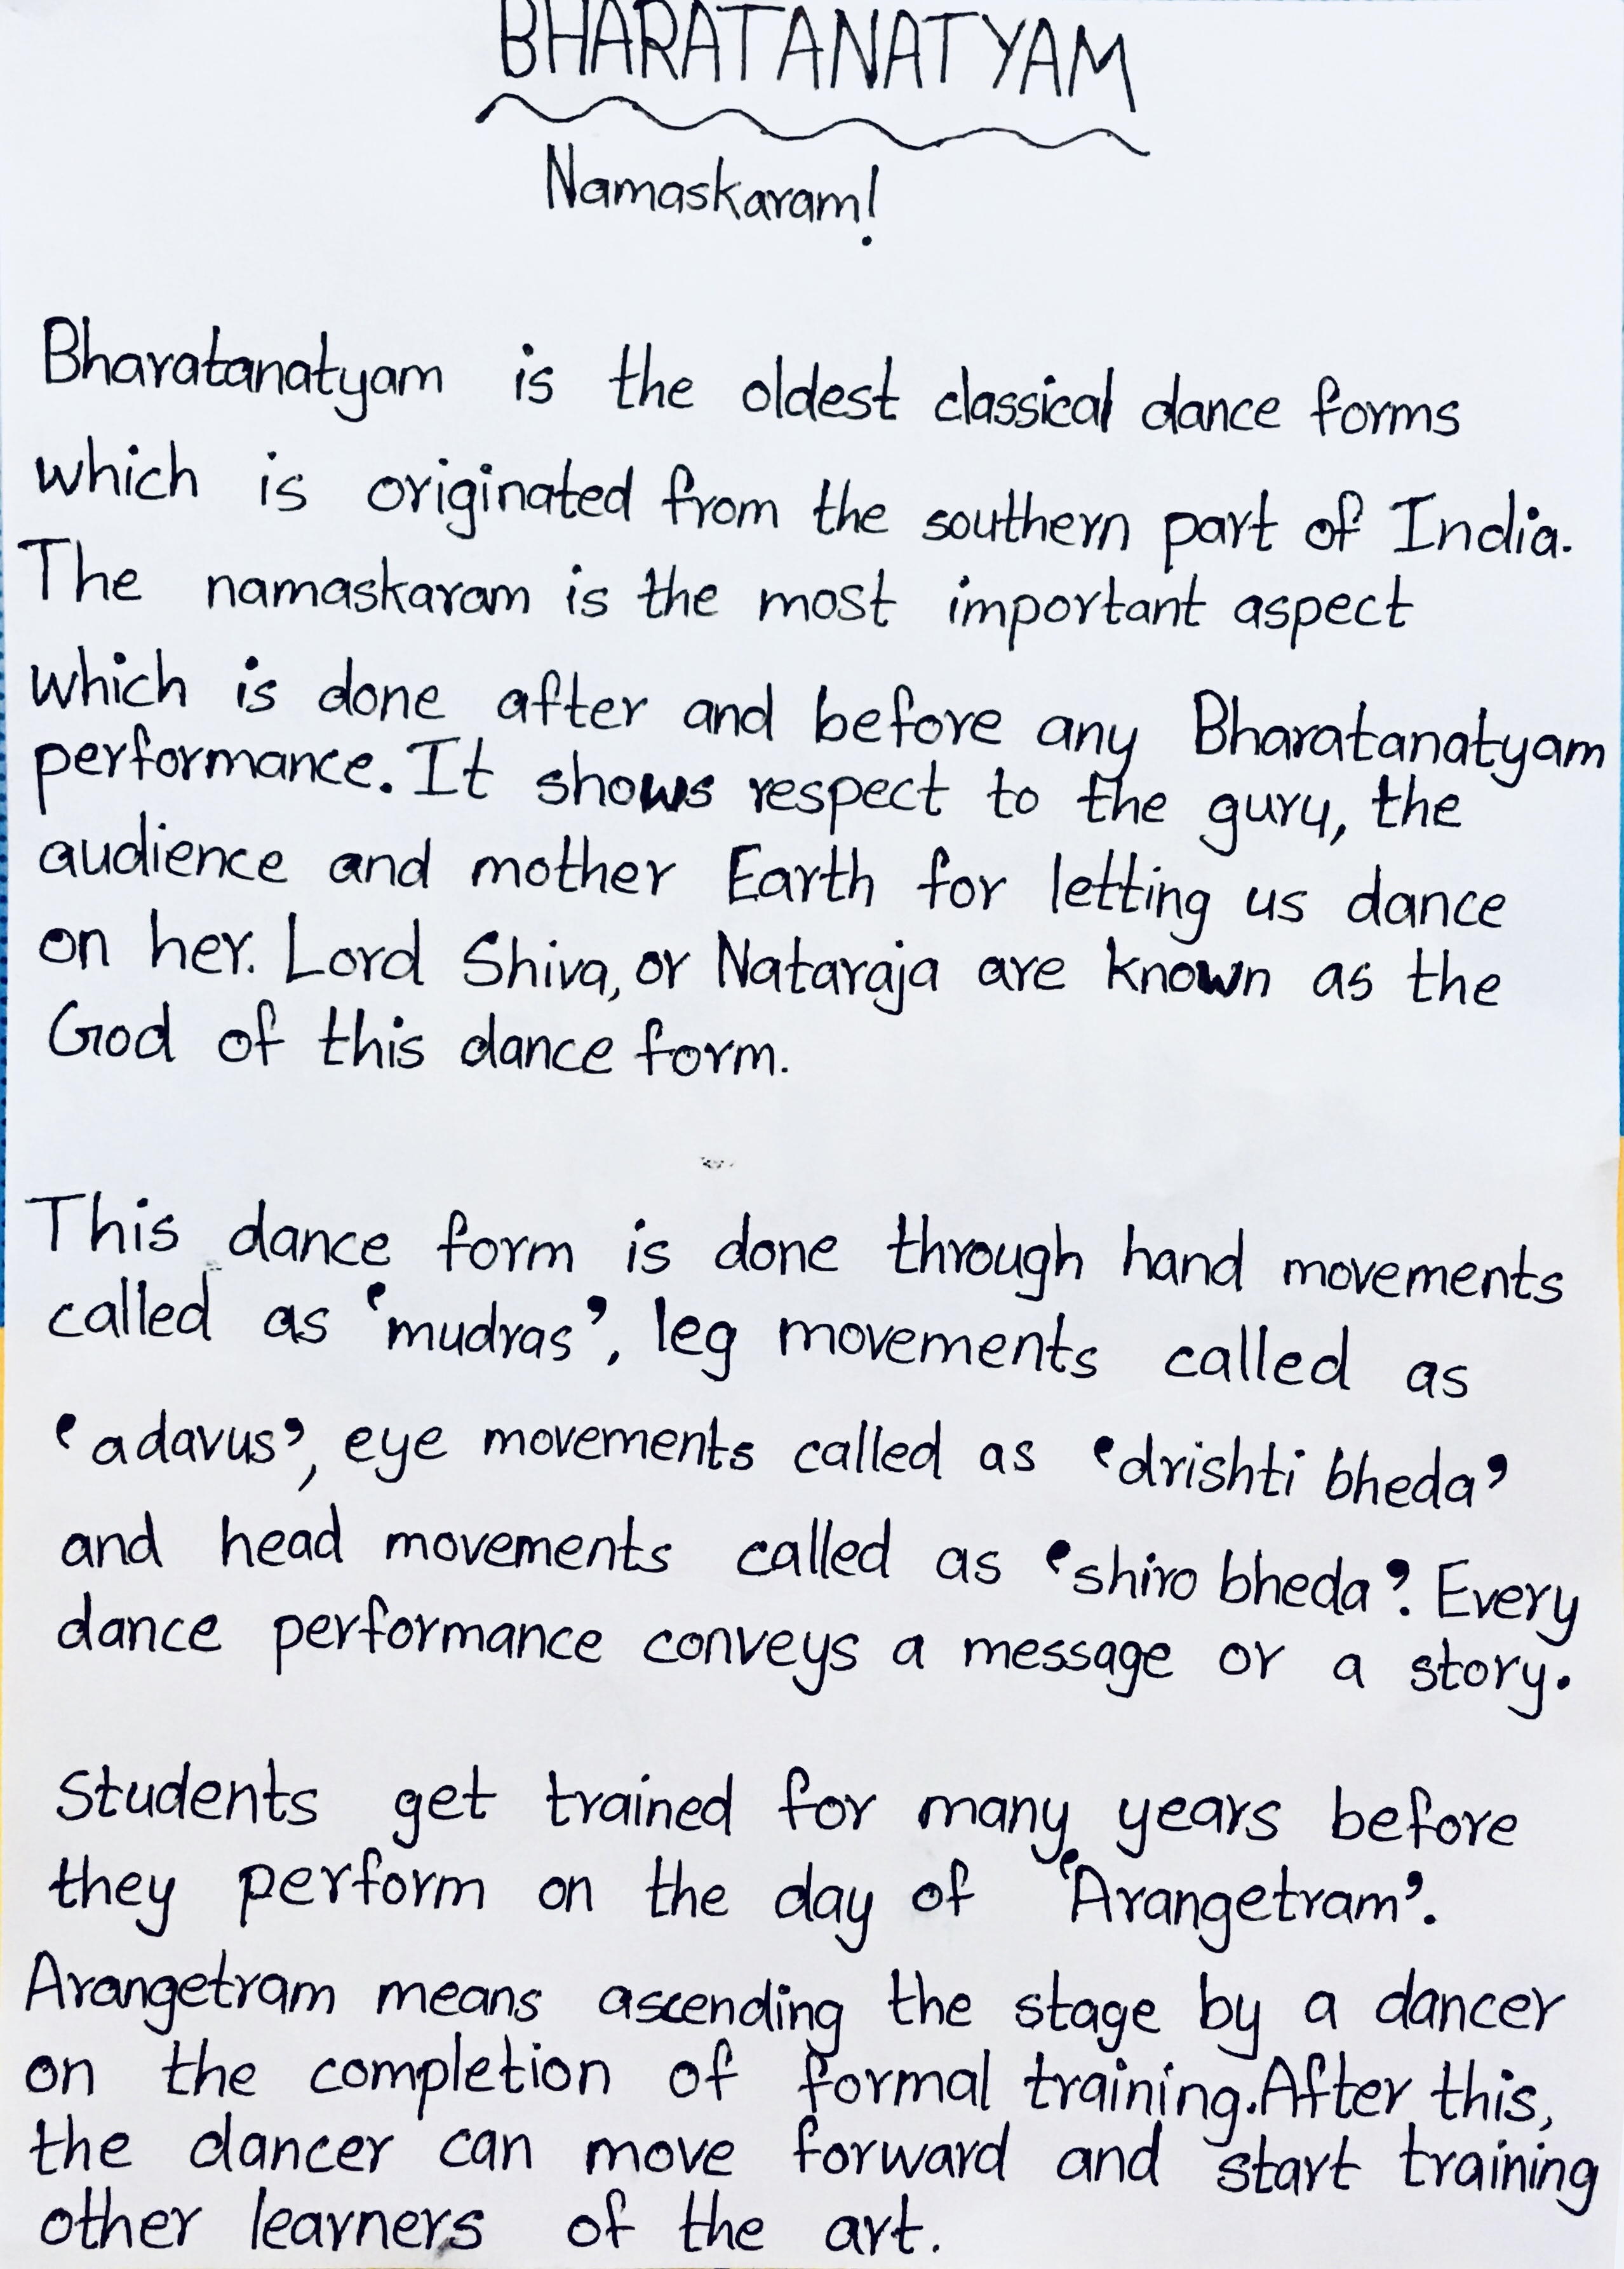 BHARATANATYAM
Namaskaram!
Bharatanatyam is the oldest classical dance forms
which is originated from the southern part of India.
The namaskaram is the most important aspect
which is done after and before any Bharatanatyam
performance. It shows respect to the guru, the
audience and mother Earth for letting us dance
on her. Lord Shiva, or Nataraja are known as the
God of this dance form.
This dance form is done through hand movements
called as ‘mudras’, leg movements called as
‘adavus’, eye movements called as ‘drishti bheda’
and head movements called as ‘shiro bheda’. Every
dance performance conveys a message or a story.
Students get trained for many years before
they perform on the day of ‘Arangetram’.
Arangetram means ascending the stage by a dancer
on the completion of formal training. After this,
the dancer can move forward and start training
other learners of the art.